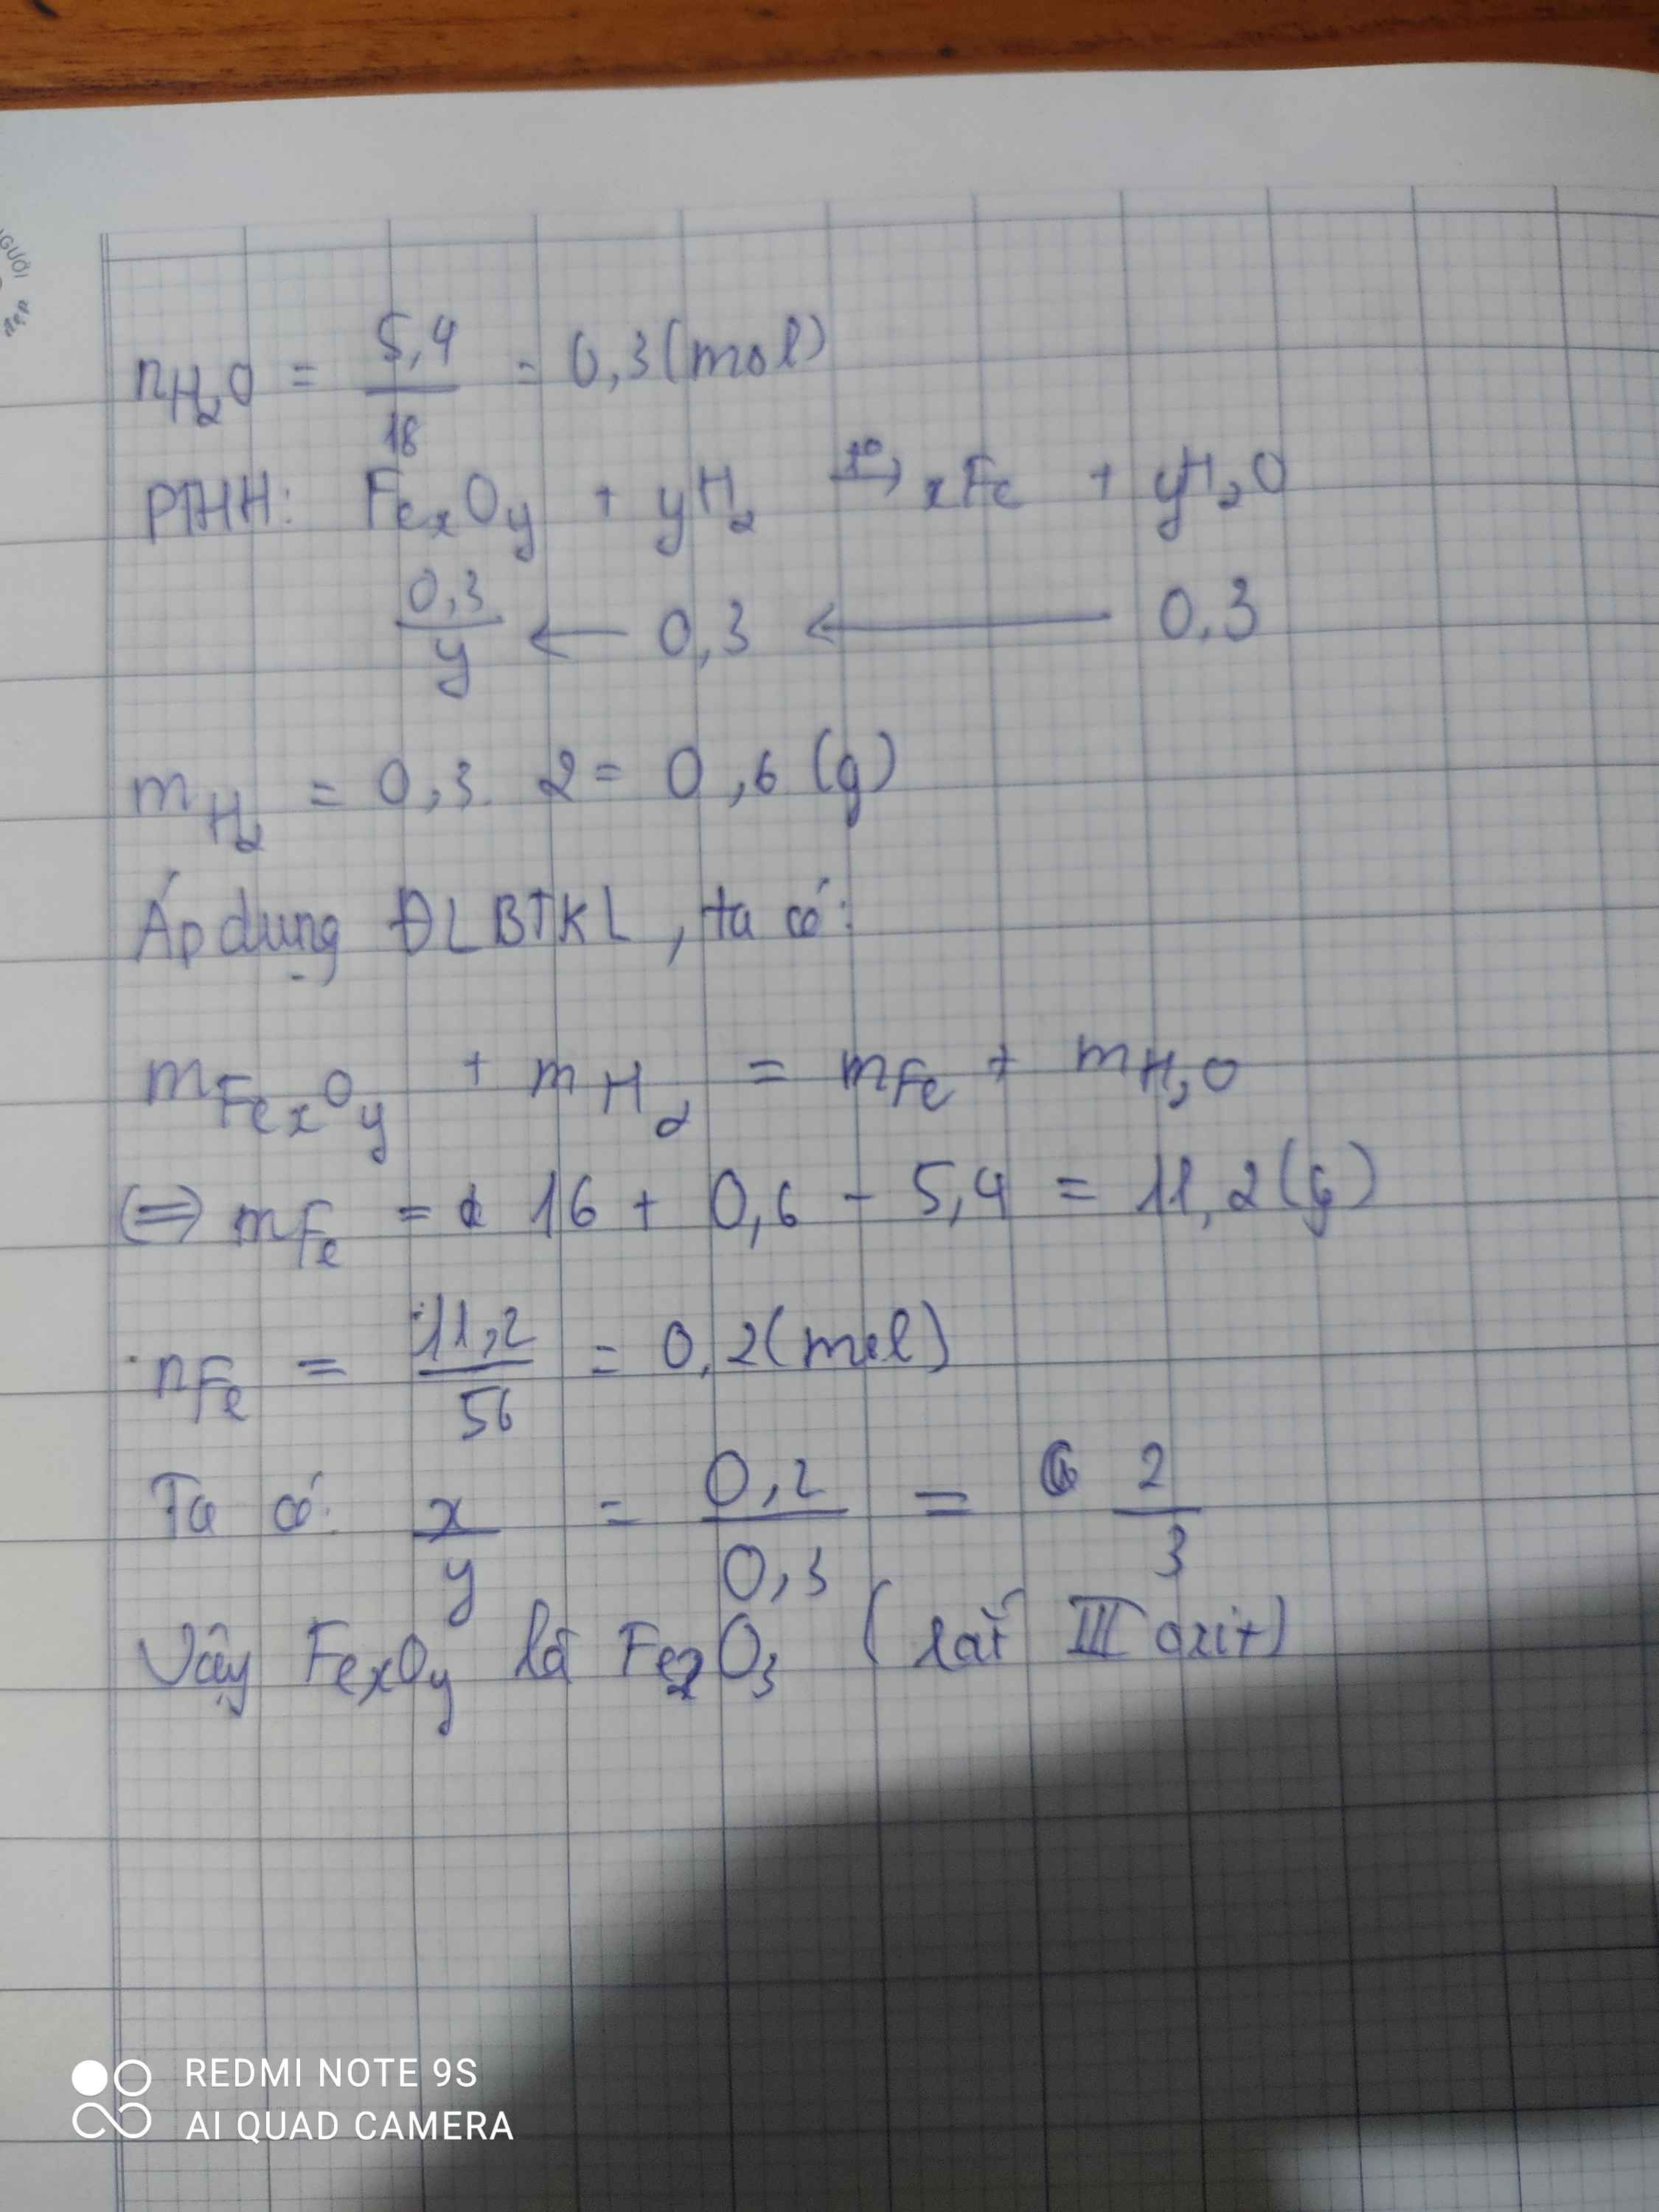 GƯỜI
nH₂O = 5,4/18 = 0,3 (mol)
PTHH: FexOy + yH₂ →(t°) xFe + yH₂O
0,3/y ← 0,3 ← 0,3
mH₂ = 0,3. 2 = 0,6 (g)
Áp dụng ĐLBTKL, ta có:
mFexOy + mH₂ = mFe + mH₂O
(=) mFe = 16 + 0,6 - 5,4 = 11,2 (g)
nFe = 11,2/56 = 0,2 (mol)
Ta có: x/y = 0,2/0,3 = 2/3
Vậy FexOy là Fe₂O₃ (sắt III oxit)
REDMI NOTE 9S
AI QUAD CAMERA